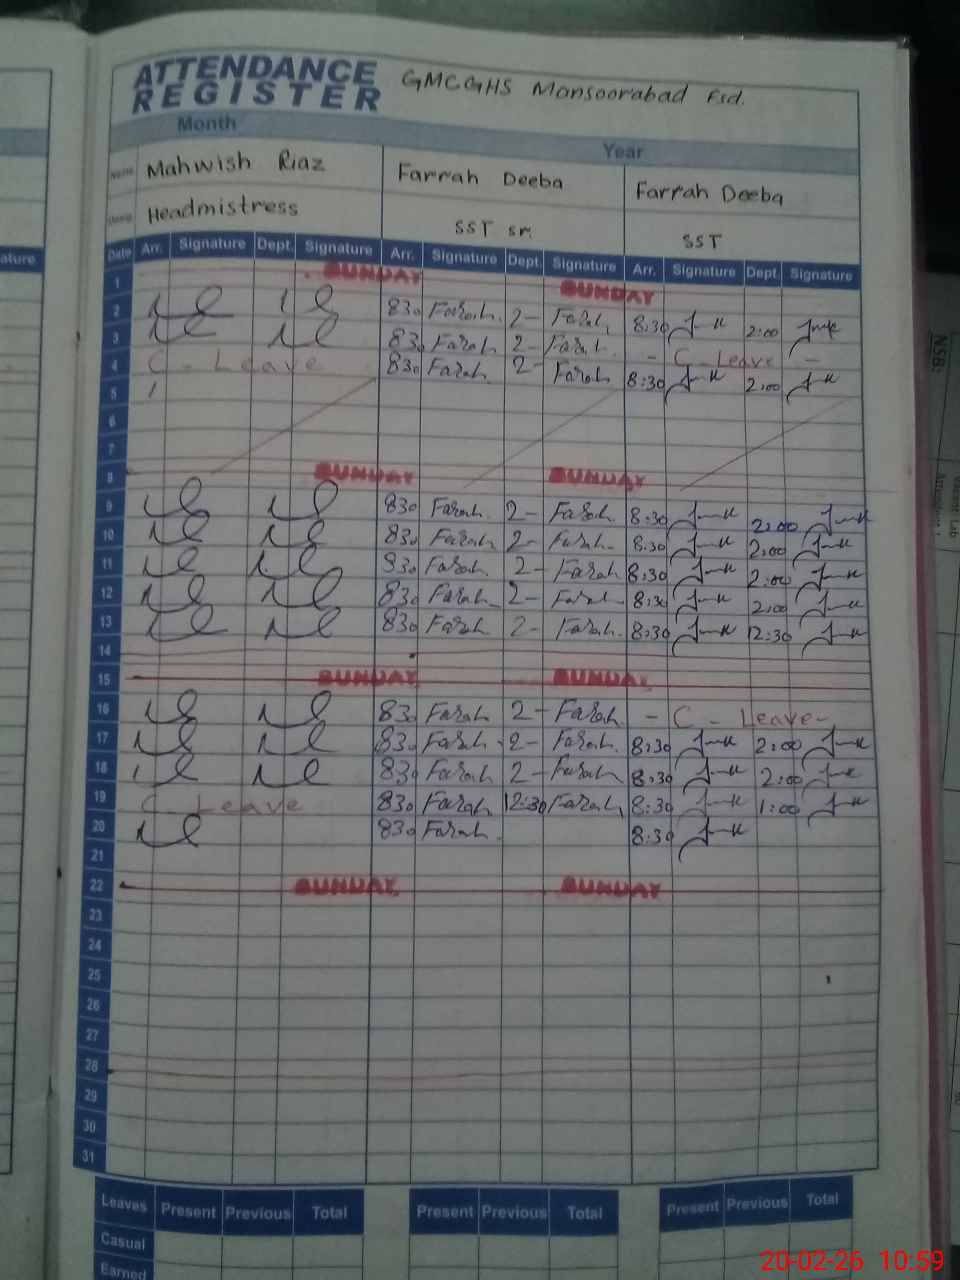 ATTENDANCE REGISTER
GMCGHS Mansoorabad Fsd.
Month Year
Name Mahwish Riaz Farrah Deeba Farrah Deeba
Headmistress SST sr. SST
ature Date Arr. Signature Dept. Signature Arr. Signature Dept. Signature Arr. Signature Dept. Signature
1 SUNDAY SUNDAY
2 830 Farah. 2- Farah 8:30 2:00
3 830 Farah 2- Farah. - C - Leave -
4 C - Leave 830 Farah 2- Farah 8:30 2:00
5
6
7
8 SUNDAY SUNDAY
9 830 Farah. 2- Farah 8:30 2:00
10 830 Farah 2- Farah- 8:30 2:00
11 830 Farah 2- Farah 8:30 2:00
12 830 Farah- 2- Farah 8:30 2:00
13 830 Farah 2- Farah. 8:30 12:30
14
15 SUNDAY SUNDAY
16 830 Farah 2- Farah - C - Leave-
17 830 Farah 2- Farah. 8:30 2:00
18 830 Farah 2- Farah 8:30 2:00
19 C Leave 830 Farah 12:30 Farah 8:30 1:00
20 830 Farah 8:30
21
22 SUNDAY SUNDAY
23
24
25
26
27
28
29
30
31
Leaves Present Previous Total Present Previous Total Present Previous Total
Casual
Earned
20-02-26 10:59